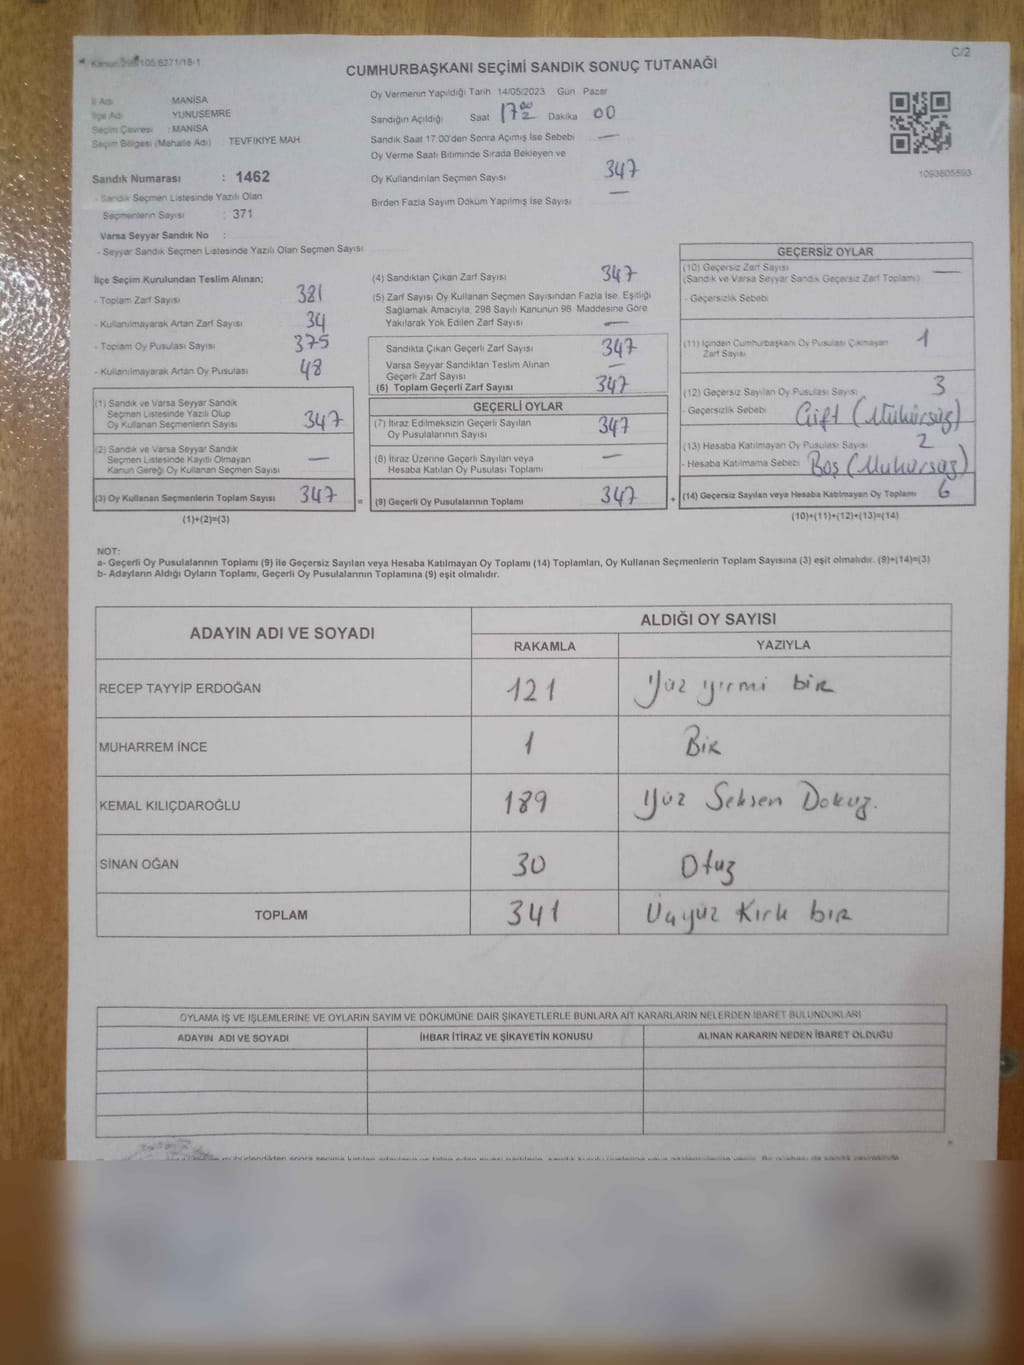 105/6271/15-1
C/2
CUMHURBAŞKANI SEÇİMİ SANDIK SONUÇ TUTANAĞI
İl Adı MANİSA
İlçe Adı YUNUSEMRE
Seçim Çevresi : MANİSA
Seçim Bölgesi (Mahalle Adı) TEVFIKIYE MAH
Sandık Numarası : 1462
- Sandık Seçmen Listesinde Yazılı Olan
Seçmenlerin Sayısı : 371
Varsa Seyyar Sandık No :
- Seyyar Sandık Seçmen Listesinde Yazılı Olan Seçmen Sayısı
Oy Vermenin Yapıldığı Tarih 14/05/2023 Gün Pazar
Sandığın Açıldığı Saat Dakika 00
Sandık Saat 17:00'den Sonra Açımış İse Sebebi —
Oy Verme Saati Bitiminde Sırada Bekleyen ve
Oy Kullandırılan Seçmen Sayısı 347
Birden Fazla Sayım Döküm Yapılmış İse Sayısı —
1093805593
İlçe Seçim Kurulundan Teslim Alınan;
- Toplam Zarf Sayısı 381
- Kullanılmayarak Artan Zarf Sayısı 34
- Toplam Oy Pusulası Sayısı 375
- Kullanılmayarak Artan Oy Pusulası 48
(1) Sandık ve Varsa Seyyar Sandık
Seçmen Listesinde Yazılı Olup
Oy Kullanan Seçmenlerin Sayısı 347
(2) Sandık ve Varsa Seyyar Sandık
Seçmen Listesinde Kayıtlı Olmayan
Kanun Gereği Oy Kullanan Seçmen Sayısı —
(3) Oy Kullanan Seçmenlerin Toplam Sayısı 347 =
(1)+(2)=(3)
(4) Sandıktan Çıkan Zarf Sayısı 347
(5) Zarf Sayısı Oy Kullanan Seçmen Sayısından Fazla İse, Eşitliği
Sağlamak Amacıyla, 298 Sayılı Kanunun 98. Maddesine Göre
Yakılarak Yok Edilen Zarf Sayısı —
Sandıkta Çıkan Geçerli Zarf Sayısı 347
Varsa Seyyar Sandıktan Teslim Alınan
Geçerli Zarf Sayısı —
(6) Toplam Geçerli Zarf Sayısı 347
GEÇERLİ OYLAR
(7) İtiraz Edilmeksizin Geçerli Sayılan
Oy Pusulalarının Sayısı 347
(8) İtiraz Üzerine Geçerli Sayılan veya
Hesaba Katılan Oy Pusulası Toplamı —
(9) Geçerli Oy Pusulalarının Toplamı 347 +
GEÇERSİZ OYLAR
(10) Geçersiz Zarf Sayısı —
(Sandık ve Varsa Seyyar Sandık Geçersiz Zarf Toplamı)
- Geçersizlik Sebebi
(11) İçinden Cumhurbaşkanı Oy Pusulası Çıkmayan 1
Zarf Sayısı
(12) Geçersiz Sayılan Oy Pusulası Sayısı 3
- Geçersizlik Sebebi Çift (Mühürsüz)
(13) Hesaba Katılmayan Oy Pusulası Sayısı 2
- Hesaba Katılmama Sebebi Boş (Mühürsüz)
(14) Geçersiz Sayılan veya Hesaba Katılmayan Oy Toplamı 6
(10)+(11)+(12)+(13)=(14)
NOT:
a- Geçerli Oy Pusulalarının Toplamı (9) ile Geçersiz Sayılan veya Hesaba Katılmayan Oy Toplamı (14) Toplamları, Oy Kullanan Seçmenlerin Toplam Sayısına (3) eşit olmalıdır. (9)+(14)=(3)
b- Adayların Aldığı Oyların Toplamı, Geçerli Oy Pusulalarının Toplamına (9) eşit olmalıdır.
ADAYIN ADI VE SOYADI ALDIĞI OY SAYISI
RAKAMLA YAZIYLA
RECEP TAYYİP ERDOĞAN 121 Yüz yirmi bir
MUHARREM İNCE 1 Bir
KEMAL KILIÇDAROĞLU 189 Yüz Seksen Dokuz.
SİNAN OĞAN 30 Otuz
TOPLAM 341 Üçyüz Kırk bir
OYLAMA İŞ VE İŞLEMLERİNE VE OYLARIN SAYIM VE DÖKÜMÜNE DAİR ŞİKAYETLERLE BUNLARA AİT KARARLARIN NELERDEN İBARET BULUNDUKLARI
ADAYIN ADI VE SOYADI İHBAR İTİRAZ VE ŞİKAYETİN KONUSU ALINAN KARARIN NEDEN İBARET OLDUĞU